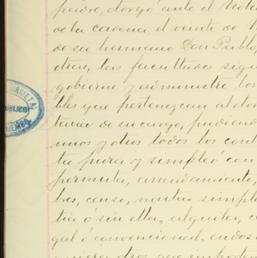 padre, otorgó ante el Nota
de la Coruña, el veinte de
de su hermano Don Pablo,
otras, las facultades sigu
gobierne y administre los
les que pertenezcan al don
tario de su cargo, pudiendo
unos y otros todos los cont
ta pura y simple ó con
permuta, arrendamiento,
bes, censo, mutuo simple
tia ó sin ella, alquiler, c
gal ó convencional, endos
PUBLICO